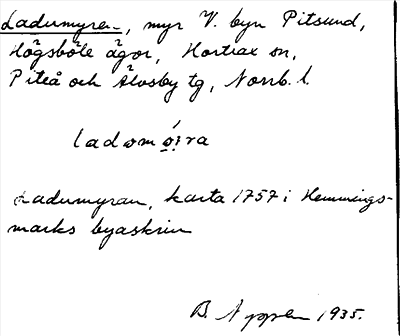 Ladumyren, myr V. byn Pitsund,
Högsböle ägor, Hortlax sn,
Piteå och Älvsby tg, Norrb. l.
ladomö̩ra
Ladumyran, karta 1757 i Hemmings-
marks byaskrin
B. 1935.